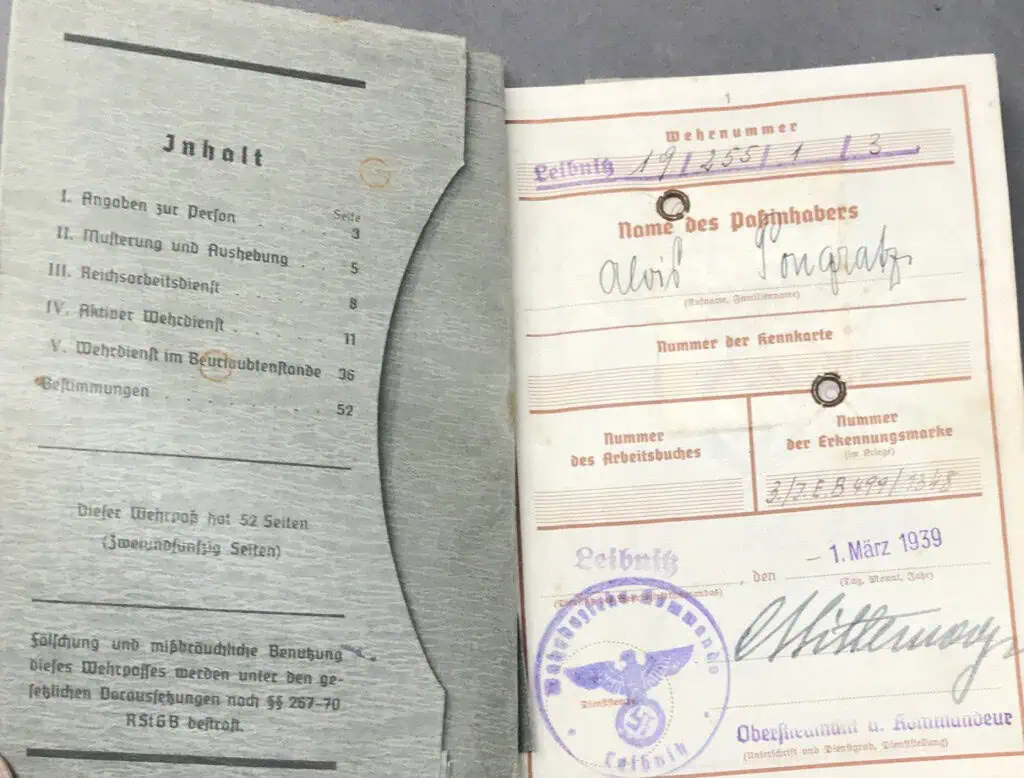 Inhalt
Seite
I. Angaben zur Person . . . . 3
II. Musterung und Aushebung . . 5
III. Reichsarbeitsdienst . . . . 8
IV. Aktiver Wehrdienst . . . . 11
V. Wehrdienst im Beurlaubtenstande 36
Bestimmungen . . . . 52
Dieser Wehrpaß hat 52 Seiten
(Zweiundfünfzig Seiten)
Fälschung und mißbräuchliche Benutzung
dieses Wehrpasses werden unter den ge-
setzlichen Voraussetzungen nach §§ 267-70
RStGB bestraft.
1
Wehrnummer
Leibnitz 19/255/1/3
Name des Paßinhabers
Alois Pongratz
(Rufname, Familienname)
Nummer der Kennkarte
Nummer
des Arbeitsbuches
Nummer
der Erkennungsmarke
(im Kriege)
3./J.E.B 499/1348
Leibnitz, den – 1. März 1939
(Tag, Monat, Jahr)
Wehrbezirks-Kommando
Leibnitz
Dienststempel
Oberstleutnant u. Kommandeur
(Unterschrift und Dienstgrad, Dienststellung)